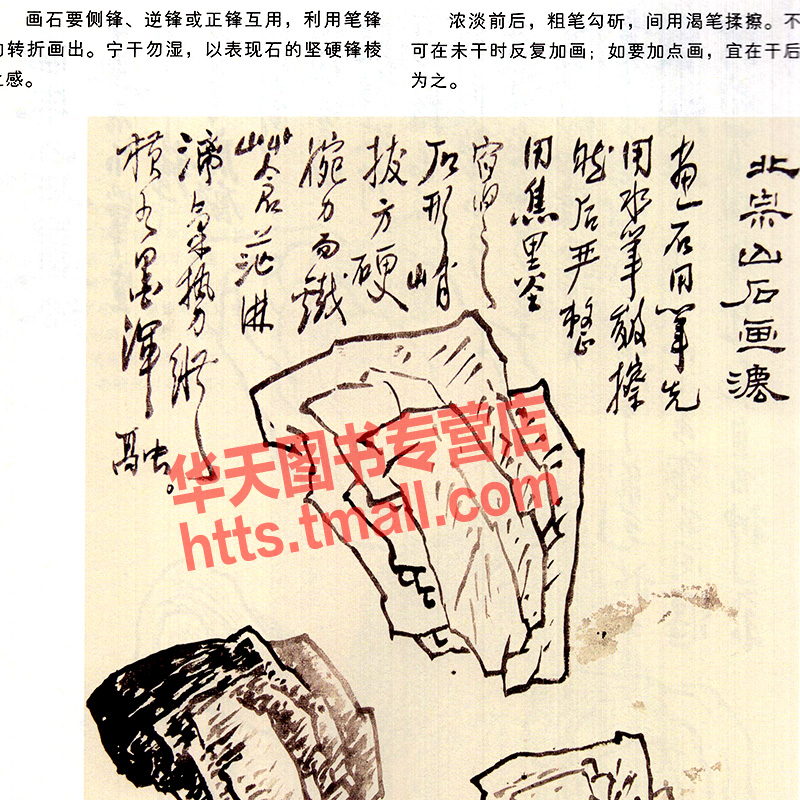 画石要侧锋、逆锋或正锋互用，利用笔锋
转折画出。宁干勿湿，以表现石的坚硬锋棱
之感。
浓淡前后，粗笔勾斫，间用渴笔揉擦。不
可在未干时反复加画；如要加点画，宜在干后
为之。
北宗山石画法
画石用笔先
用水笔皴擦
然后严整
用焦墨
石形峭
拔方硬
腕力而铁
苍茫淋
漓气势纵
横水墨浑
融。
华天图书专营店
htts.tmall.com